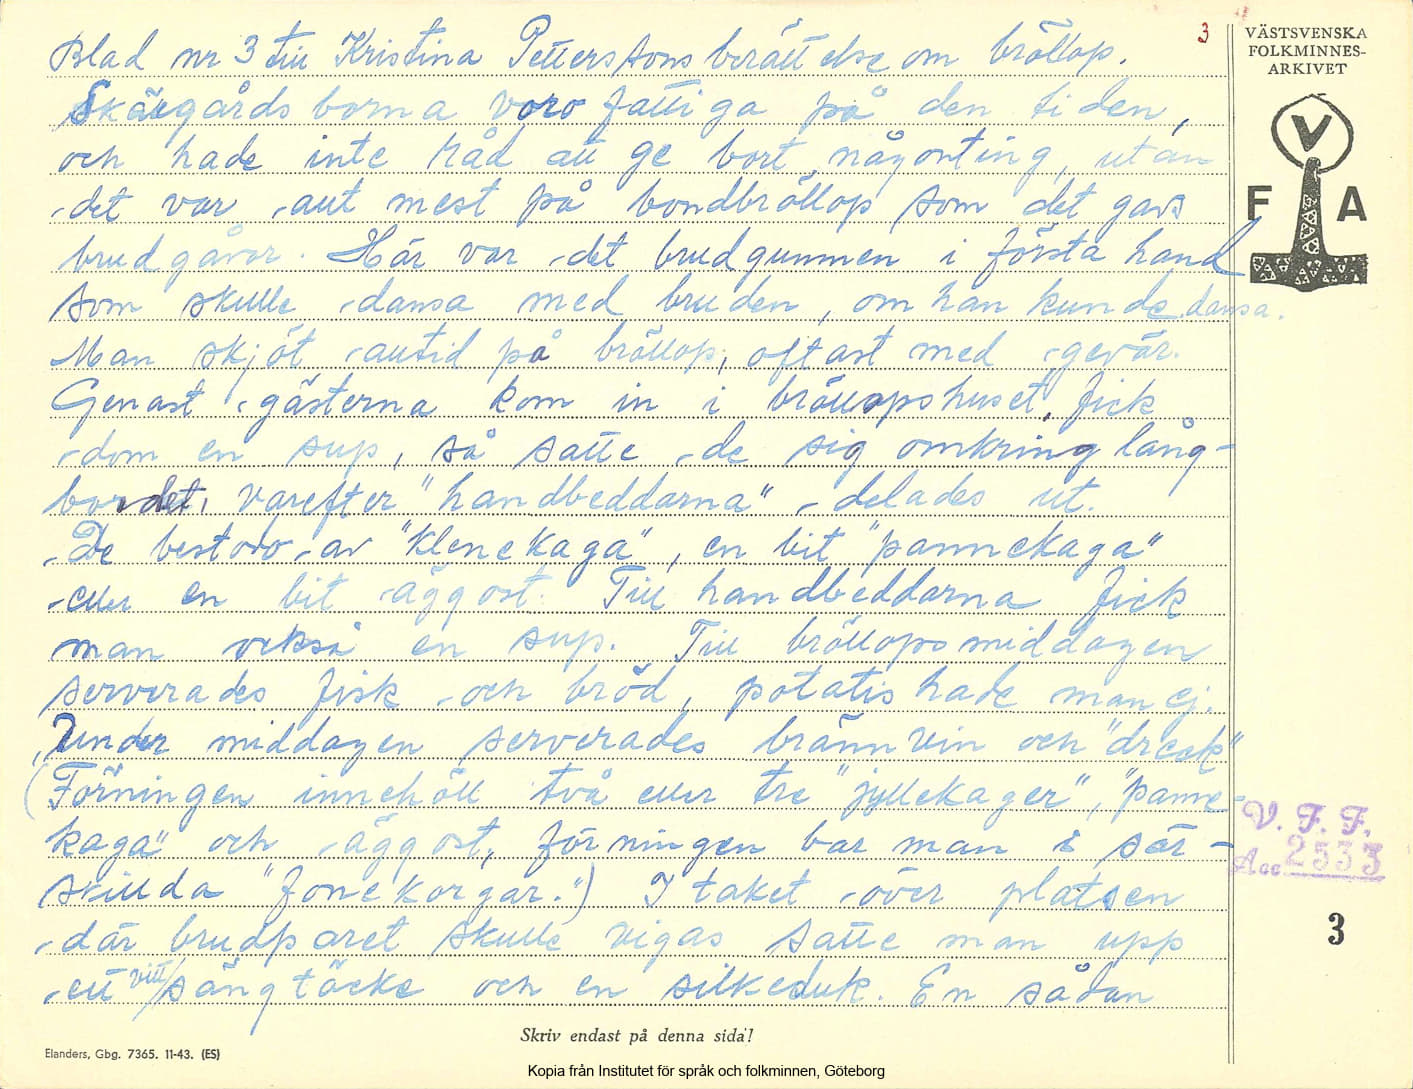 Blad nr 3 till Kristina Petterssons berättelse om bröllop.
Skärgårdsborna voro fattiga på den tiden,
och hade inte råd att ge bort någonting, utan
det var allt mest på bondbröllop som det gavs
brudgåvor. Här var det brudgummen i första hand
som skulle dansa med bruden, om han kunde dansa.
Man skjöt alltid på bröllop, oftast med gevär.
Genast gästerna kom in i bröllopshuset, fick
dom en sup, så satte de sig omkring lång-
bordet, varefter "handbeddarna" delades ut.
De bestodo av "klenekaga", en bit "pannekaga"
eller en bit äggost. Till handbeddarna fick
man också en sup. Till bröllopsmiddagen
serverades fisk och bröd, potatis hade man ej.
Under middagen serverades brännvin och "dreck"
(Förningen innehöll två eller tre "jyllekager", "panne-
kaga" och äggost, förningen bar man i sär-
skillda "fonekorgar.") I taket över platsen
där brudparet skulle vigas satte man upp
ett vitt sängtäcke och en silkeduk. En sådan
3
VÄSTSVENSKA
FOLKMINNES-
ARKIVET
V
F A
V. F. F.
Acc 2533
3
Skriv endast på denna sida!
Elanders, Gbg. 7365. 11-43. (ES)
Kopia från Institutet för språk och folkminnen, Göteborg